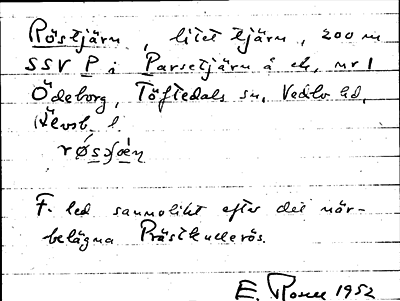 Röstjärn, litet tjärn, 200 m
SSV P i Parsetjärn å ek, nr 1
Ödeborg, Töftedals sn, Vedbo hd,
Älvsb. l.
F. led sannolikt efter det när-
belägna Prästkullerös.
E. 1952